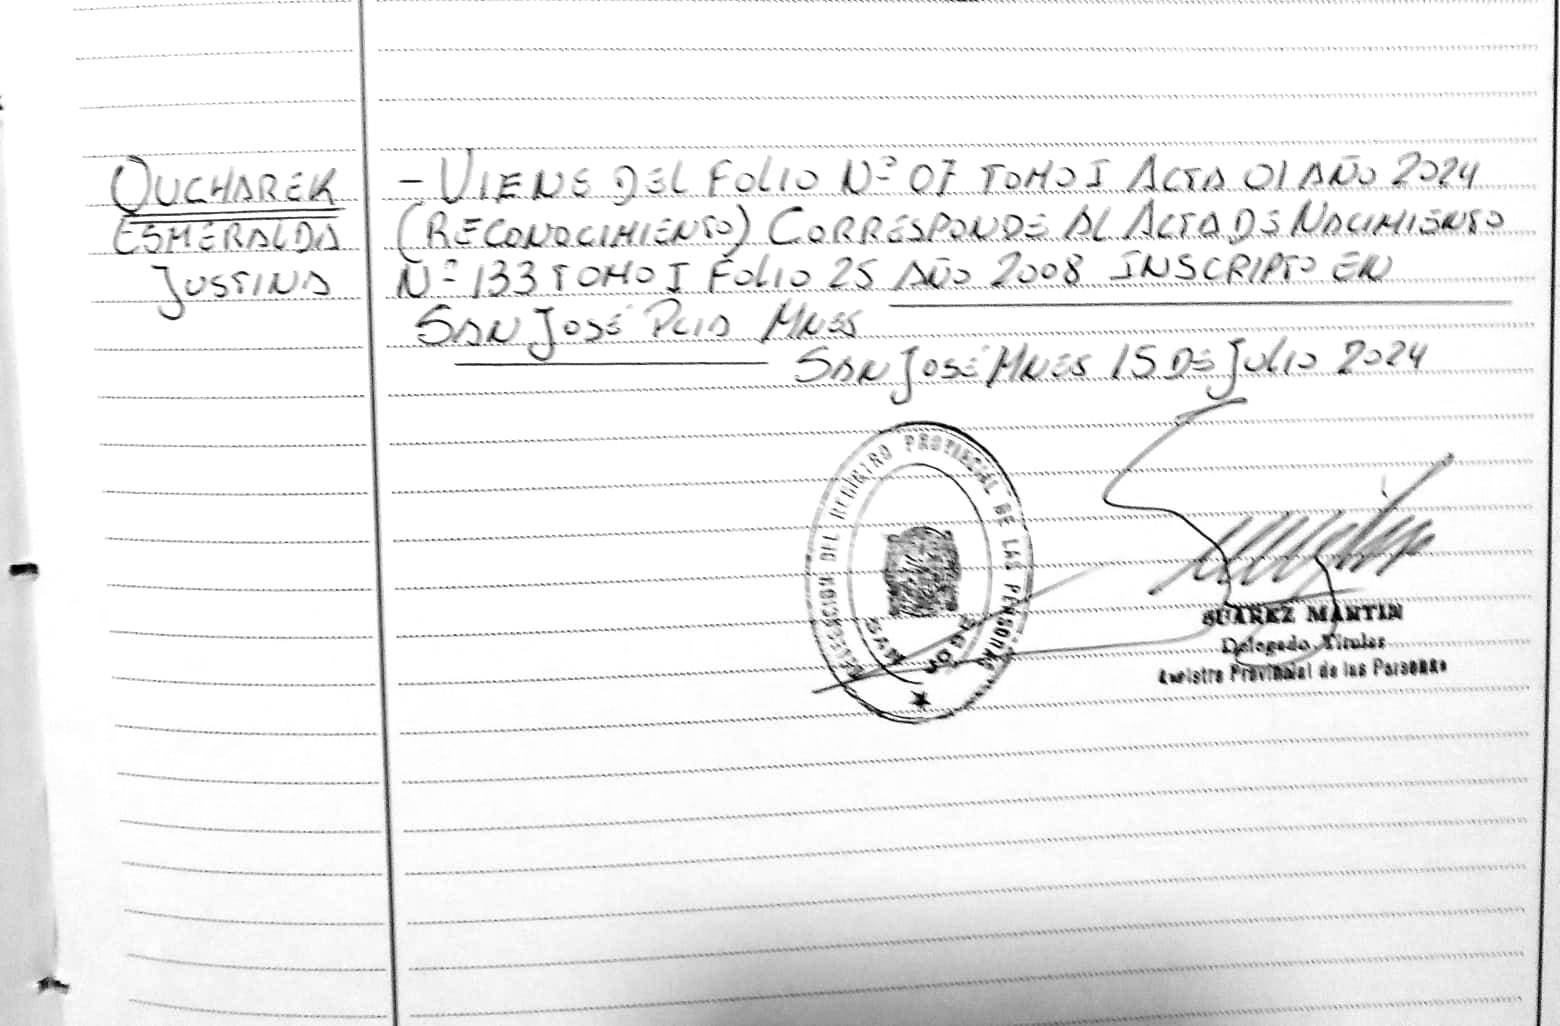 OUCHAREK
ESMERALDA
JUSTINA
- VIENE DEL FOLIO Nº 07 TOMO I ACTA 01 AÑO 2024
(RECONOCIMIENTO) CORRESPONDE AL ACTA DE NACIMIENTO
Nº 133 TOMO I FOLIO 25 AÑO 2008 INSCRIPTO EN
SAN JOSÉ PCIA MNES
SAN JOSÉ MNES 15 DE JULIO 2024
DELEGACION DEL REGISTRO PROVINCIAL DE LAS PERSONAS
SAN JOSE
SUAREZ MARTIN
Delegado Titular
Registro Provincial de las Personas